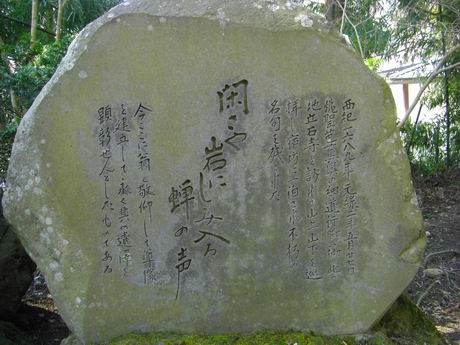 西紀一六八九年元禄二年五月廿七日
俳聖芭蕉翁奥の細道行脚の砌此の
地立石寺を訪れ山上山下を巡
拝し宿坊に宿され不朽の
名句を残された
閑さや
岩にしみ入る
蝉の声
今ここに翁を敬仰して尊像
を建立して永く其の遺徳を
顕彰せんとしたものである